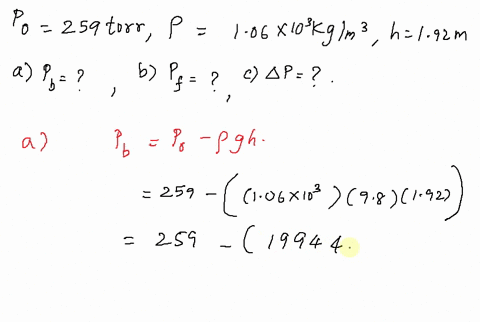 P₀ = 259 torr, ρ = 1.06 ×10³ Kg/m³, h = 1.92 m
a) P_b = ? , b) P_f = ? , c) ΔP = ? .
a) P_b = P₀ - ρgh.
= 259 - ((1.06×10³)(9.8)(1.92))
= 259 - (19944.